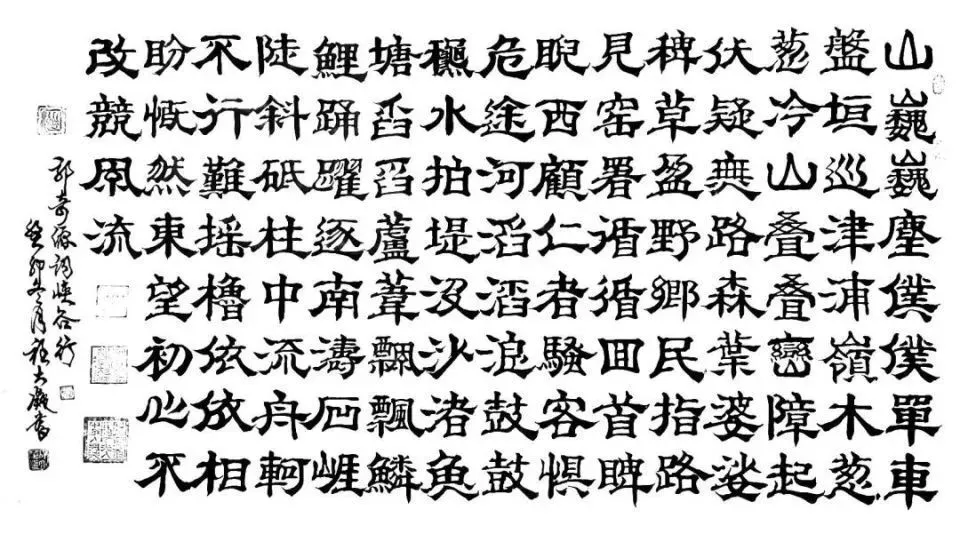 山巍巍塵僕僕單車
盤垣巡津浦嶺木葱
葱冷山叠叠巒障起
伏疑無路森葉婆娑
稗草盈野鄉民指路
見窑署遁循回首睥
睨西顧仁者騷客惧
危途河滔滔浪鼓鼓
水拍堤沒沙渚魚
塘舀舀蘆葦飄飄鱗
鯉踊躍逐南濤石崕
陡斜砥柱中流舟軻
不行難摇櫓依依相
盼慨然東望初心不
改競風流
奇源词峽谷行
癸卯冬月程大書